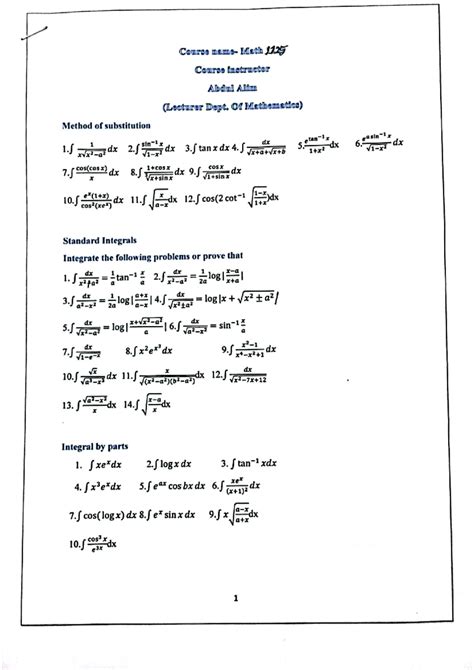 Course name- Math 1125
Course instructor
Abdul Alim
(Lecturer Dept. Of Mathematics)
Method of substitution
1.∫ 1/(x√(x²−a²)) dx 2.∫ sin⁻¹x/√(1−x²) dx 3.∫ tan x dx 4.∫ dx/(√(x+a)+√(x+b)) 5.∫ e^(tan⁻¹x)/(1+x²) dx 6.∫ e^(a sin⁻¹x)/√(1−x²) dx
7.∫ cos(cos x)/x dx 8.∫ (1+cos x)/√(x+sin x) dx 9.∫ cos x/√(1+sin x) dx
10.∫ eˣ(1+x)/cos²(xeˣ) dx 11.∫ √(x/(a−x)) dx 12.∫ cos(2 cot⁻¹ √((1−x)/(1+x))) dx
Standard Integrals
Integrate the following problems or prove that
1. ∫ dx/(x²+a²) = 1/a tan⁻¹ x/a 2.∫ dx/(x²−a²) = 1/2a log|(x−a)/(x+a)|
3.∫ dx/(a²−x²) = 1/2a log|(a+x)/(a−x)| 4.∫ dx/√(x²±a²) = log|x + √(x² ± a²)|
5.∫ dx/√(x²−a²) = log|(x+√(x²−a²))/a| 6.∫ dx/√(a²−x²) = sin⁻¹ x/a
7.∫ dx/√(1−e⁻²) 8.∫ x²e^(x³) dx 9.∫ (x²−1)/(x⁴−x²+1) dx
10.∫ √x/√(a³−x³) dx 11.∫ x/√((x²−a²)(b²−x²)) dx 12.∫ dx/√(x²−7x+12)
13. ∫ √(a²−x²)/x dx 14.∫ √((x−a)/x) dx
Integral by parts
1. ∫ xeˣdx 2.∫ log x dx 3. ∫ tan⁻¹ xdx
4. ∫ x³eˣdx 5.∫ e^(ax) cos bx dx 6.∫ xeˣ/(x+1)² dx
7.∫ cos(log x) dx 8.∫ eˣ sin x dx 9.∫ x √((a−x)/(a+x))
10.∫ cos³x/e^(3x) dx
1